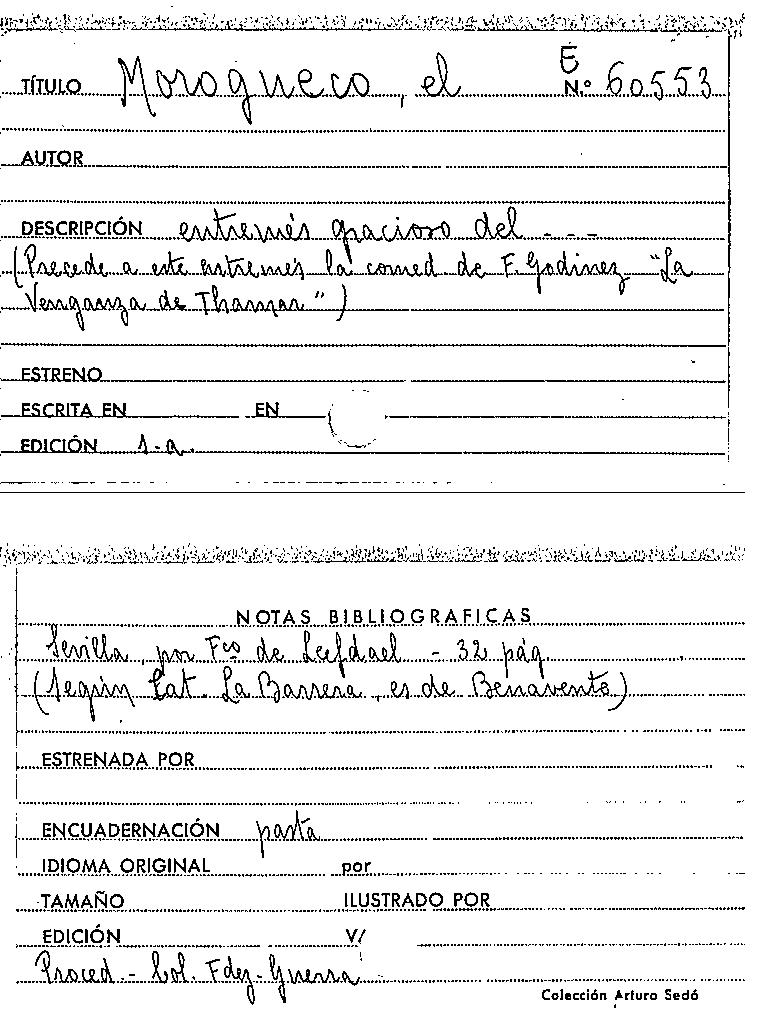 TÍTULO Morogueco, el E N.º 60553
AUTOR
DESCRIPCIÓN entremés gracioso del - - -
(Precede a este entremés la comed. de F. Godinez "La
Venganza de Thamar")
ESTRENO
ESCRITA EN EN
EDICIÓN 1-a.
NOTAS BIBLIOGRAFICAS
Sevilla, por Fco de Leefdael - 32 pág
(Según Cat. La Barrera, es de Benavente)
ESTRENADA POR
ENCUADERNACIÓN pasta
IDIOMA ORIGINAL por
TAMAÑO ILUSTRADO POR
EDICIÓN V/
Proced.- Col. Fdez-Guerra
Colección Arturo Sedó